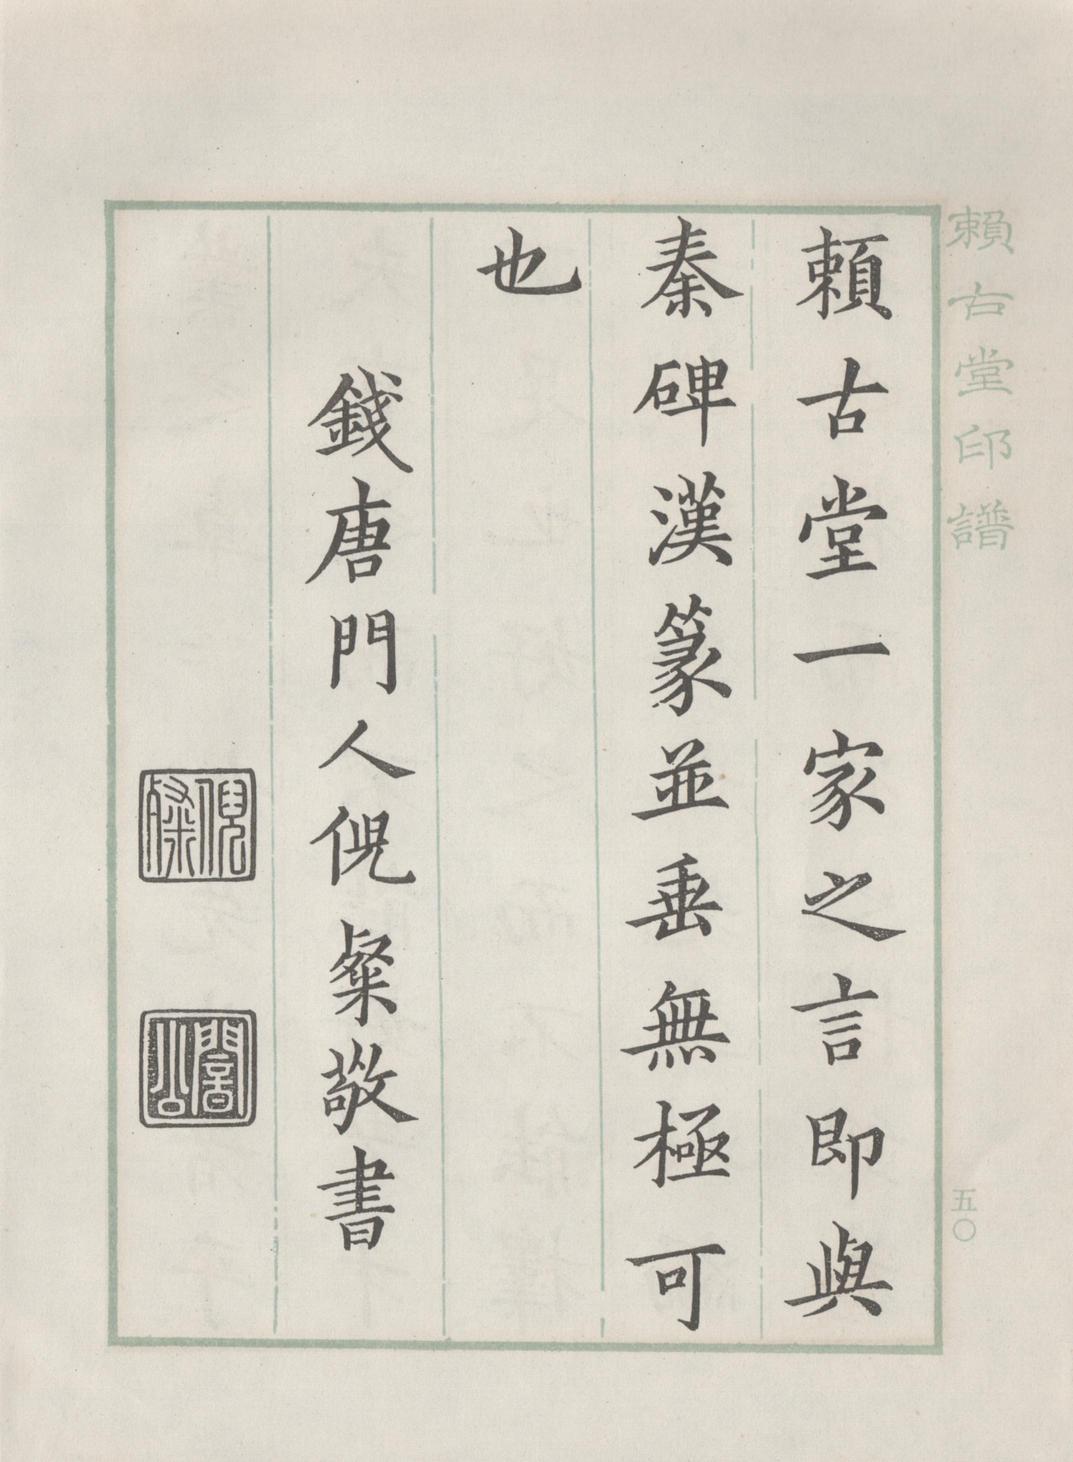 賴古堂印譜
五〇
賴古堂一家之言即與
秦碑漢篆並垂無極可
也
錢唐門人倪粲敬書
倪粲
闇公